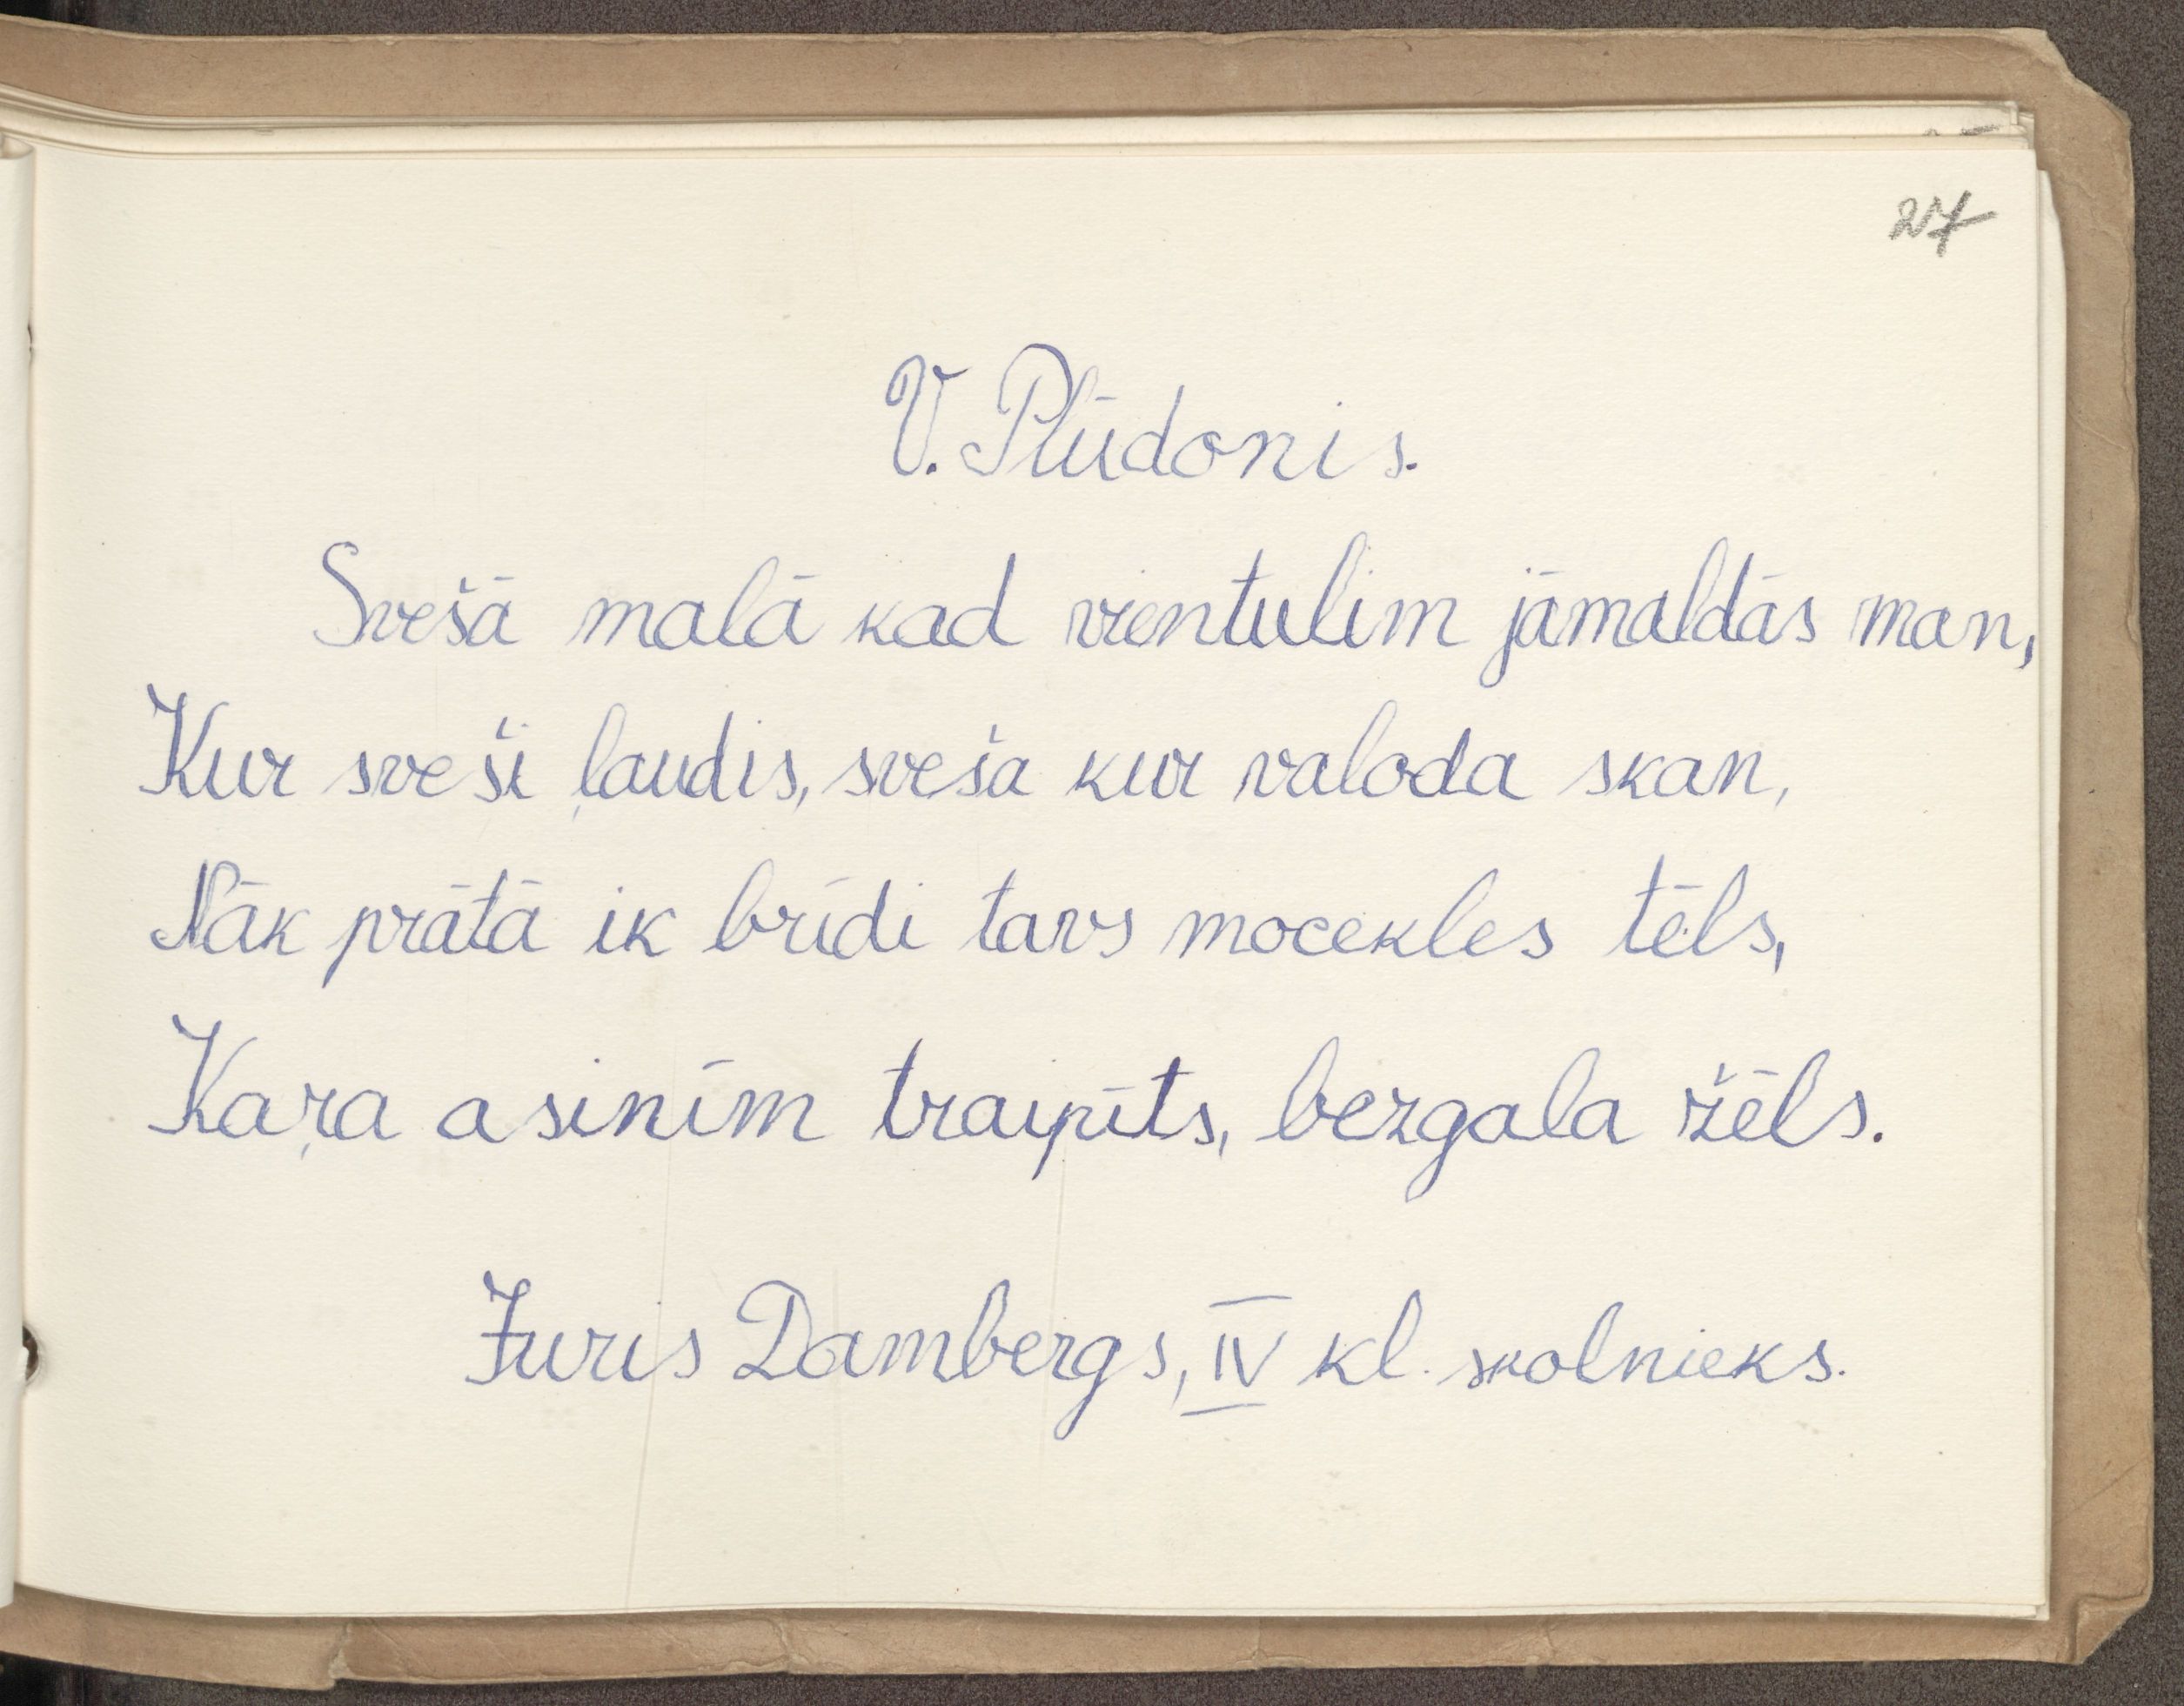 27
V. Plūdonis.
Svešā malā kad vientulim jāmaldās man,
Kur sveši ļaudis, sveša kur valoda skan,
Nāk prātā ik brīdi tavs mocekles tēls,
Kaŗa asinīm traipīts, bezgala žēls.
Juris Dambergs, IV kl. skolnieks.